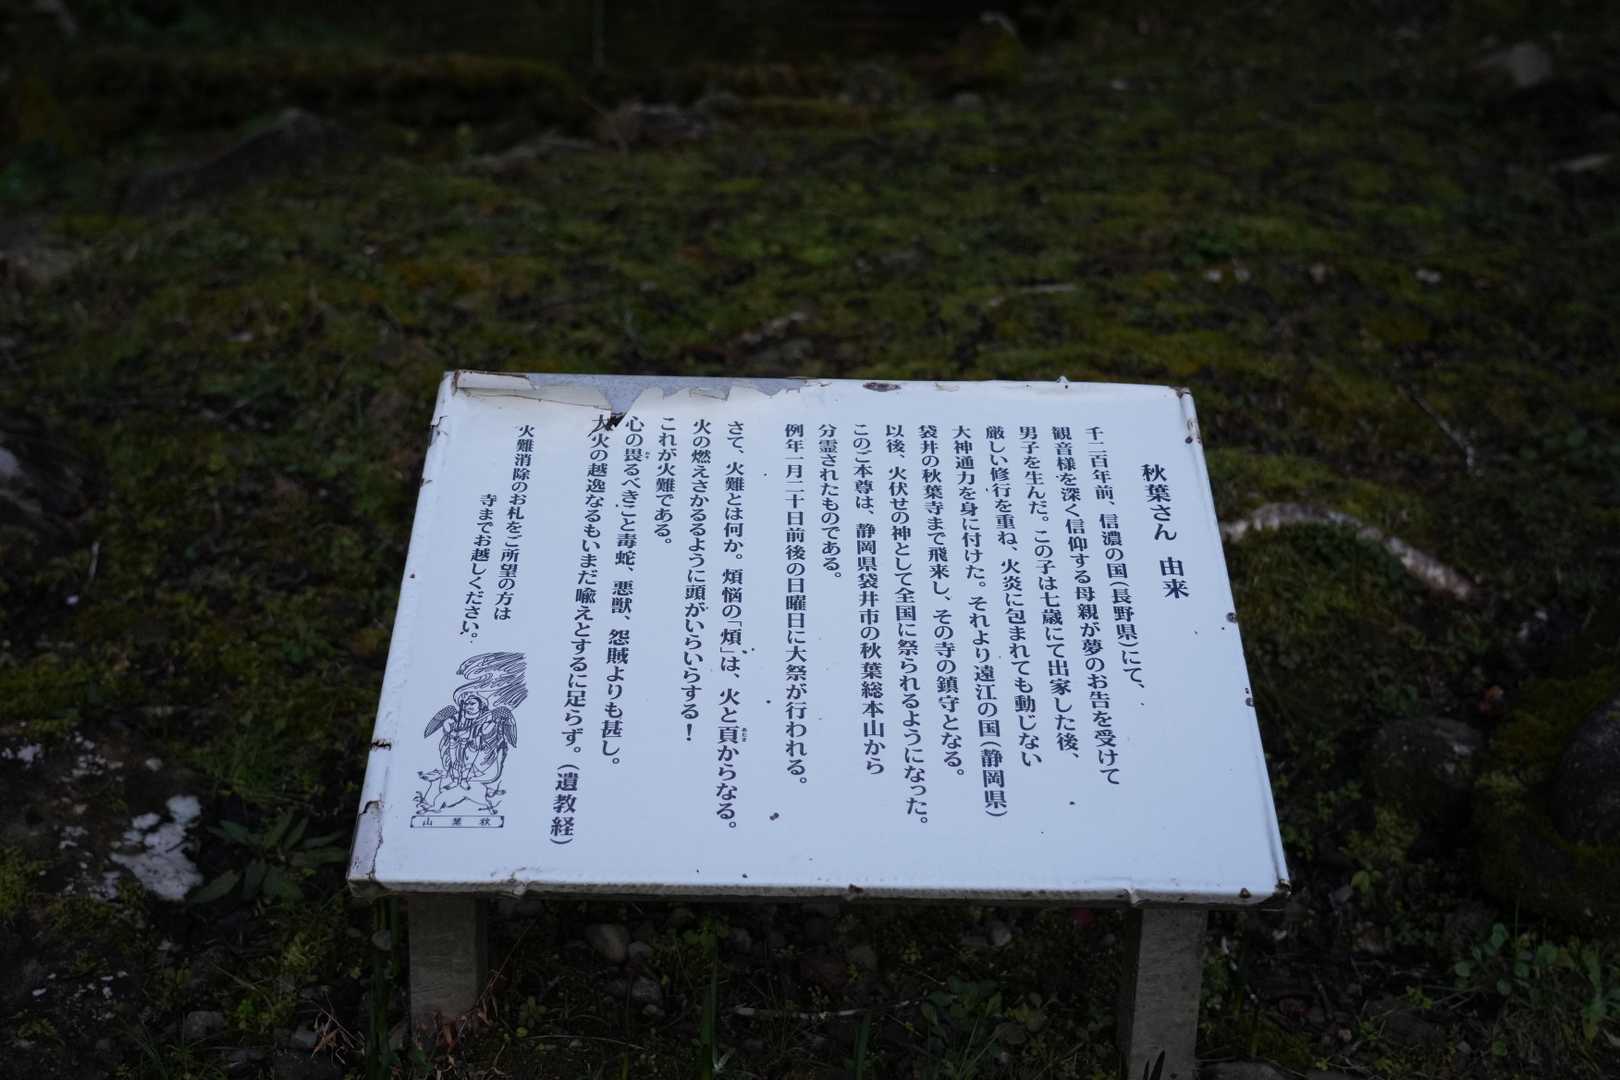 秋葉さん 由来
千二百年前、信濃の国(長野県)にて、
観音様を深く信仰する母親が夢のお告を受けて
男子を生んだ。この子は七歳にて出家した後、
厳しい修行を重ね、火炎に包まれても動じない
大神通力を身に付けた。それより遠江の国(静岡県)
袋井の秋葉寺まで飛来し、その寺の鎮守となる。
以後、火伏せの神として全国に祭られるようになった。
このご本尊は、静岡県袋井市の秋葉総本山から
分霊されたものである。
例年一月二十日前後の日曜日に大祭が行われる。
さて、火難とは何か。煩悩の「煩」は、火と頁からなる。
あたま
火の燃えさかるるように頭がいらいらする!
これが火難である。
心の畏るべきこと毒蛇、悪獣、怨賊よりも甚し。
おそ
大火の越逸なるもいまだ喩えとするに足らず。(遺教経)
火難消除のお札をご所望の方は
寺までお越しください。
山葉秋